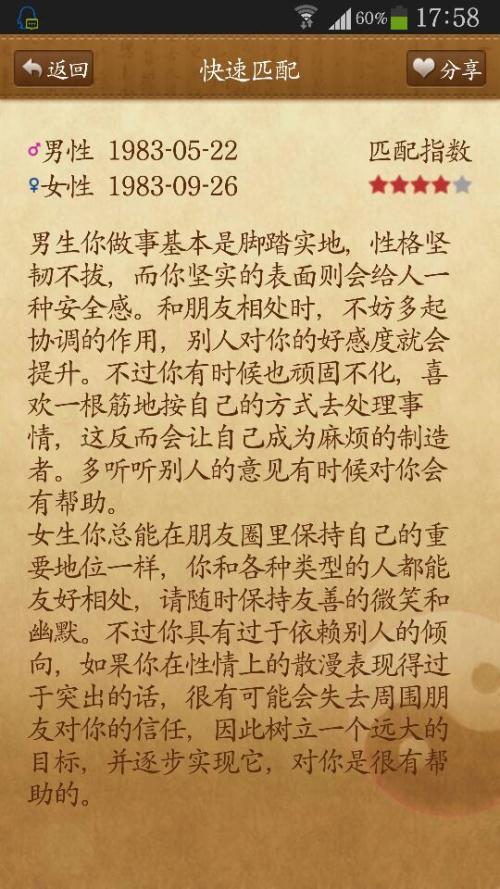 60% 17:58
返回 快速匹配 分享
男性 1983-05-22 匹配指数
女性 1983-09-26
男生你做事基本是脚踏实地，性格坚
韧不拔，而你坚实的表面则会给人一
种安全感。和朋友相处时，不妨多起
协调的作用，别人对你的好感度就会
提升。不过你有时候也顽固不化，喜
欢一根筋地按自己的方式去处理事
情，这反而会让自己成为麻烦的制造
者。多听听别人的意见有时候对你会
有帮助。
女生你总能在朋友圈里保持自己的重
要地位一样，你和各种类型的人都能
友好相处，请随时保持友善的微笑和
幽默。不过你具有过于依赖别人的倾
向，如果你在性情上的散漫表现得过
于突出的话，很有可能会失去周围朋
友对你的信任，因此树立一个远大的
目标，并逐步实现它，对你是很有帮
助的。